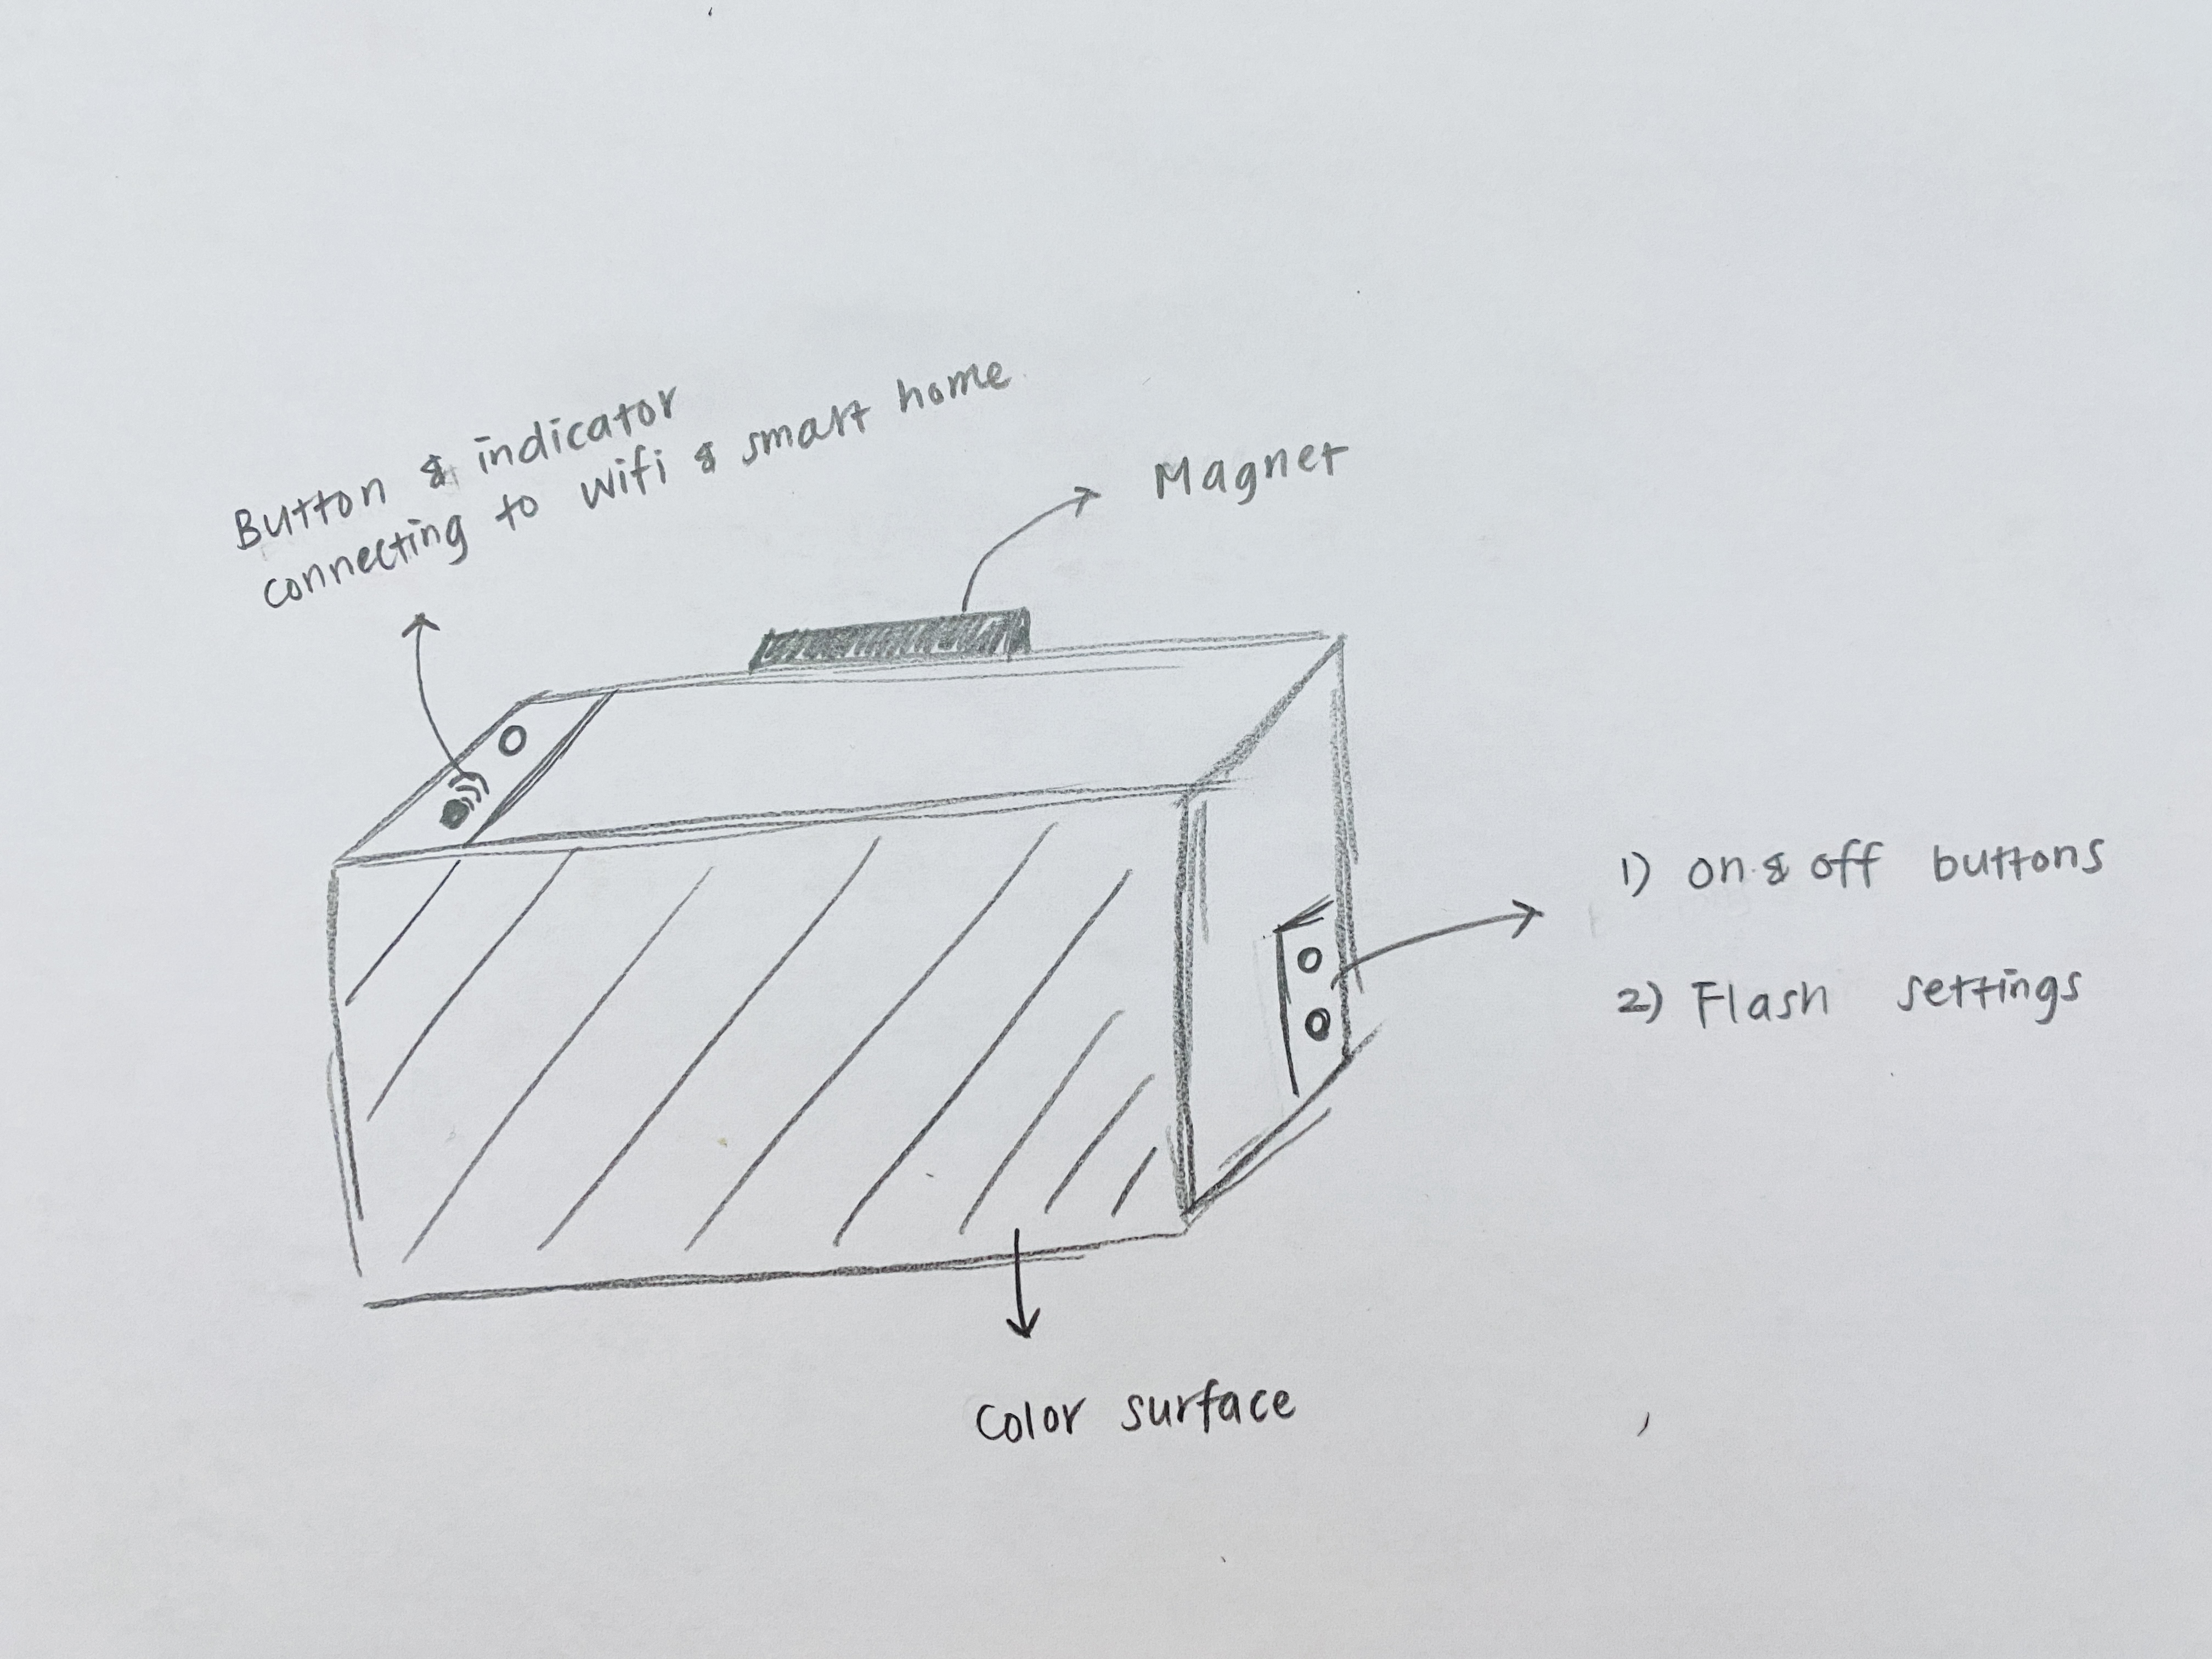 Button & indicator
connecting to wifi & smart home
Magnet
1) on & off buttons
2) Flash settings
color surface